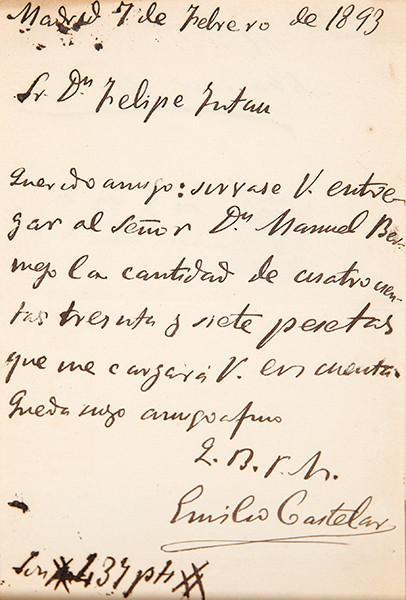 Madrid 7 de Febrero de 1893
Sr. Dn Felipe
Querido amigo: sirvase V. entre-
gar al Señor Dn Manuel Ber-
mejo la cantidad de cuatrocien-
tas treinta y siete pesetas
que me cargará V. en cuenta.
Queda suyo amigo afmo
Q. B. S. M.
Emilio Castelar
Son 437 pts